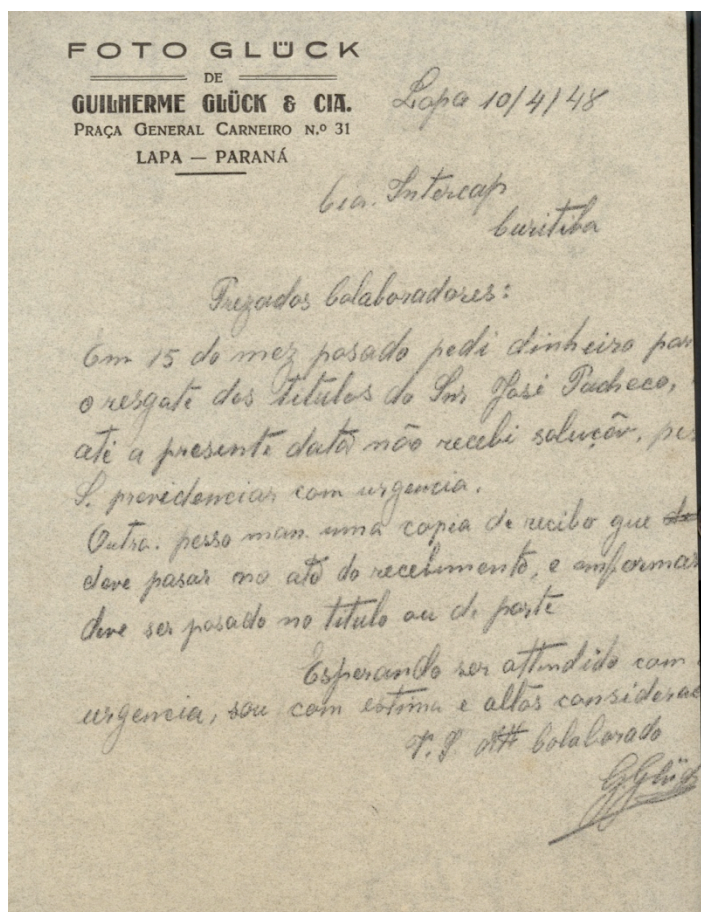 FOTO GLÜCK
DE
GUILHERME GLÜCK & CIA.
PRAÇA GENERAL CARNEIRO N.º 31
LAPA — PARANÁ
Lapa 10/4/48
Cia. Intercap
Curitiba
Prezados Colaboradores:
Em 15 do mez pasado pedi dinheiro par
o resgate dos titulos do Snr José Pacheco,
até a presente data não recebi solução, pes
S. previdenciar com urgencia.
Outro. pesso man. uma copia de recibo que
deve pasar no ato do recebimento, e emformar
deve ser pasado no titulo ou di parte
Esperando ser attendido com
urgencia, sou com estima e altas considerac
V. S. Colaborado
GGlück